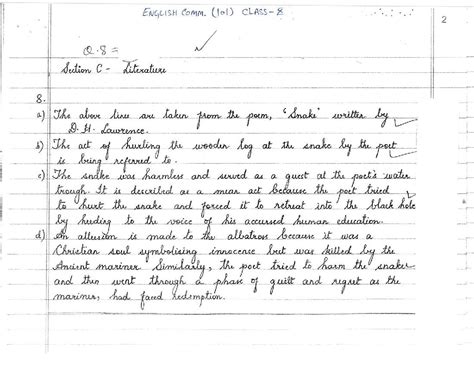 ENGLISH COMM. (101) CLASS-8
2
Q.8 =
Section C - Literature
8.
a) The above lines are taken from the poem, 'Snake' written by
D.H. Lawrence.
b) The act of hurling the wooden log at the snake by the poet
is being referred to.
c) The snake was harmless and served as a guest at the poet's water
trough. It is described as a mean act because the poet tried
to hurt the snake and forced it to retreat into the black hole
by heeding to the voice of his accursed human education.
d) An allusion is made to the albatross because it was a
Christian soul symbolising innocence but was killed by the
Ancient mariner. Similarly, the poet tried to harm the snake
and then went through a phase of guilt and regret as the
mariner had faced redemption.